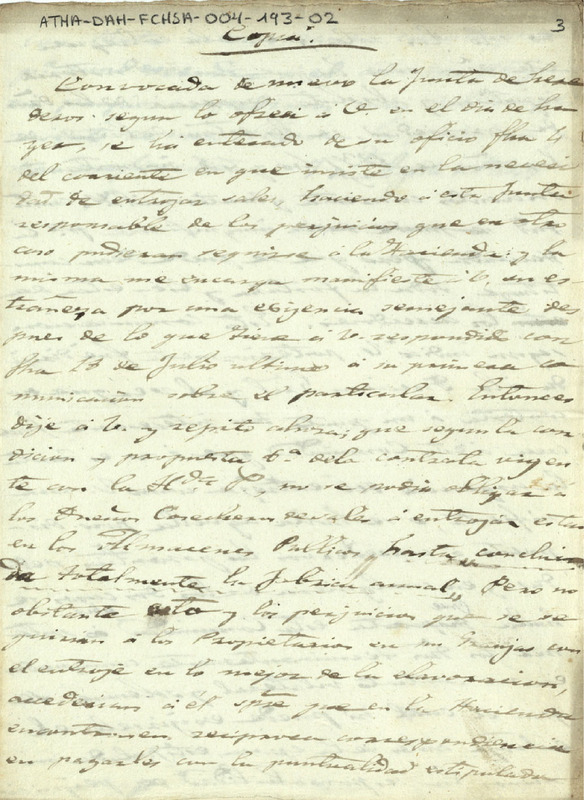 ATHA-DAH-FCHSA-004-193-02
3
Copia.
Convocada de nuevo la Junta de here
deros segun lo ofreci á V. en el dia de ha
yer, se ha enterado de su oficio fha 4
del corriente en que insiste en la necesi
dad de entrojar sales, haciendo á esta Junta
responsable de los perjuicios que en otro
caso pudieran seguirse á la Hacienda; y la
misma me encarga manifieste á V. su es
trañeza por una exigencia semejante des
pues de lo que tiene á V. respondido con
fha 13 de Julio ultimo á su primera co
municacion sobre el particular. Entonces
dije á V. y repito ahora, que segun la con
dicion y propuesta 6ª de la contrata vigen
te con la Hda P., no se podia obligar á
los Dueños Cosecheros de sales á entrojar estas
en los Almacenes Publicos hasta conclui
da totalmente la fabrica anual, Pero no
obstante esto y los perjuicios que se se
guirian á los Propietarios en sus Granjas con
el entroje en lo mejor de la elavoracion,
accederian á él spre que en la Hacienda
encontrasen reciproca correspondiencia
en pagarles con la puntualidad estipulada